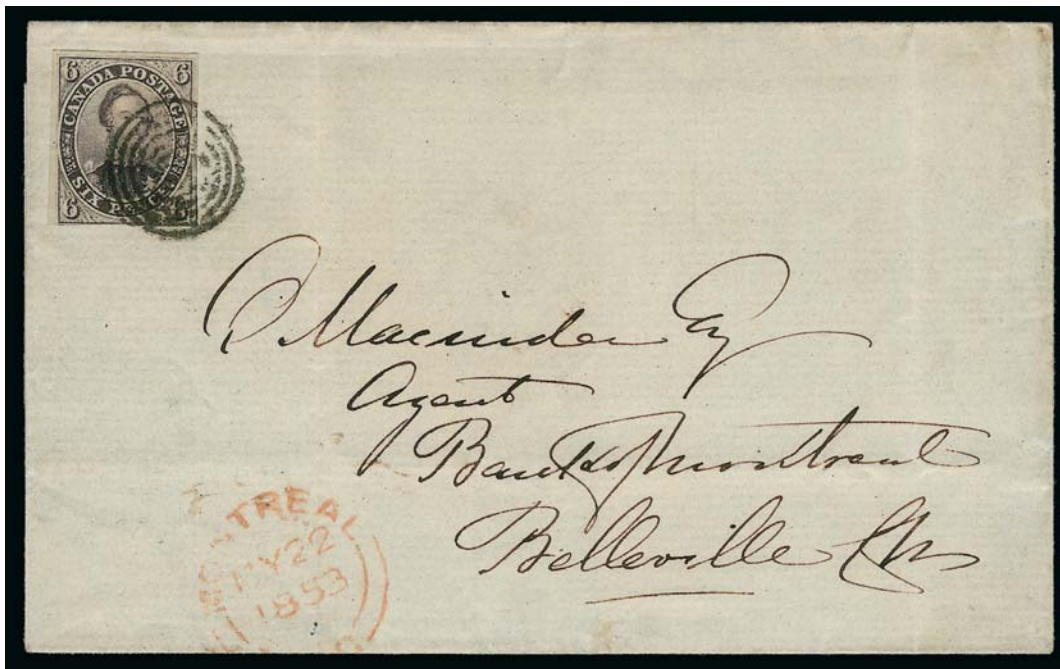 6 CANADA POSTAGE 6
6 SIX PENCE
Macnider Esq
Agent
Bank of Montreal
Belleville CW
MONTREAL
MY 22
1853